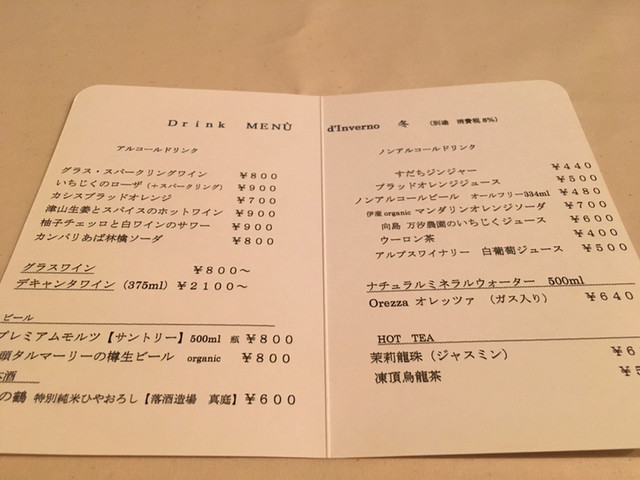 Drink MENÙ d'Inverno 冬 (別途 消費税8%)
アルコールドリンク
グラス・スパークリングワイン ￥800
いちじくのローザ(+スパークリング) ￥900
カシスブラッドオレンジ ￥700
津山生姜とスパイスのホットワイン ￥900
柚子チェッロと白ワインのサワー ￥900
カンパリあば林檎ソーダ ￥800
グラスワイン ￥800～
デキャンタワイン (375ml) ￥2100～
ビール
プレミアムモルツ【サントリー】500ml 瓶 ￥800
頭タルマーリーの樽生ビール organic ￥800
本酒
の鶴 特別純米ひやおろし【落酒造場 真庭】￥600
ノンアルコールドリンク
すだちジンジャー ￥440
ブラッドオレンジジュース ￥500
ノンアルコールビール オールフリー334ml ￥480
伊産organic マンダリンオレンジソーダ ￥700
向島 万汐農園のいちじくジュース ￥600
ウーロン茶 ￥400
アルプスワイナリー 白葡萄ジュース ￥500
ナチュラルミネラルウォーター 500ml
Orezza オレッツァ (ガス入り) ￥640
HOT TEA
茉莉龍珠(ジャスミン) ￥6
凍頂烏龍茶 ￥5